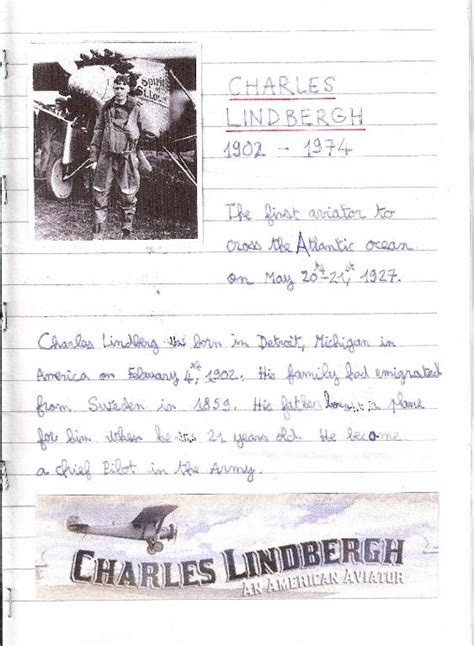 CHARLES
LINDBERGH
1902 - 1974
The first aviator to
cross the Atlantic ocean
on May 20th-21st, 1927.
Charles Lindberg was born in Detroit, Michigan in
America on February 4th, 1902. His family had emigrated
from Sweden in 1859. His father a plane
for him when he was 21 years old. He became
a chief Pilot in the Army.
CHARLES LINDBERGH
AN AMERICAN AVIATOR